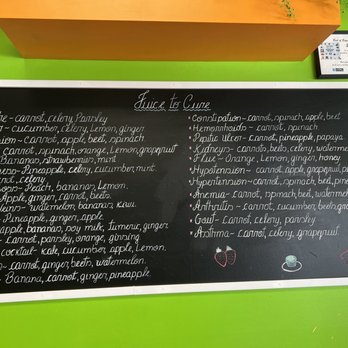 Juice to Cure
carrot, celery Parsley
cucumber, celery, Lemon, ginger
carrot, apple, beet, spinach
carrot, spinach, orange, Lemon, grapefruit
Bananas, strawberries, mint
Pineapple, celery, cucumber, mint
celery
Peach, bananas, Lemon.
Apple, ginger, carrot, beets.
watermelon, banana, kiwi.
Pineapple, ginger, apple
apple, bananas, soy milk, tumeric, ginger.
carrot, parsley, orange, ginseng
cocktail- kale, cucumber, apple, Lemon.
carrot, ginger, beets, watermelon.
Banana, carrot, ginger, pineapple.
• Constipation- carrot, spinach, apple, beet
• Hemorrhoids- carrot, spinach
• Peptic Ulcer- carrot, spinach, papaya
• Kidneys- carrot, beets, celery, watermelon
• Flue- Orange, Lemon, ginger, honey
• Hypotension- carrot, apple, grapefruit,
• Hypertension- carrot, spinach, beet,
• Anemia- carrot, spinach, beet,
• Arthritis- carrot, cucumber, beet,
• Gout- Carrot, celery, parsley
• Asthma- Carrot, celery, grapefruit